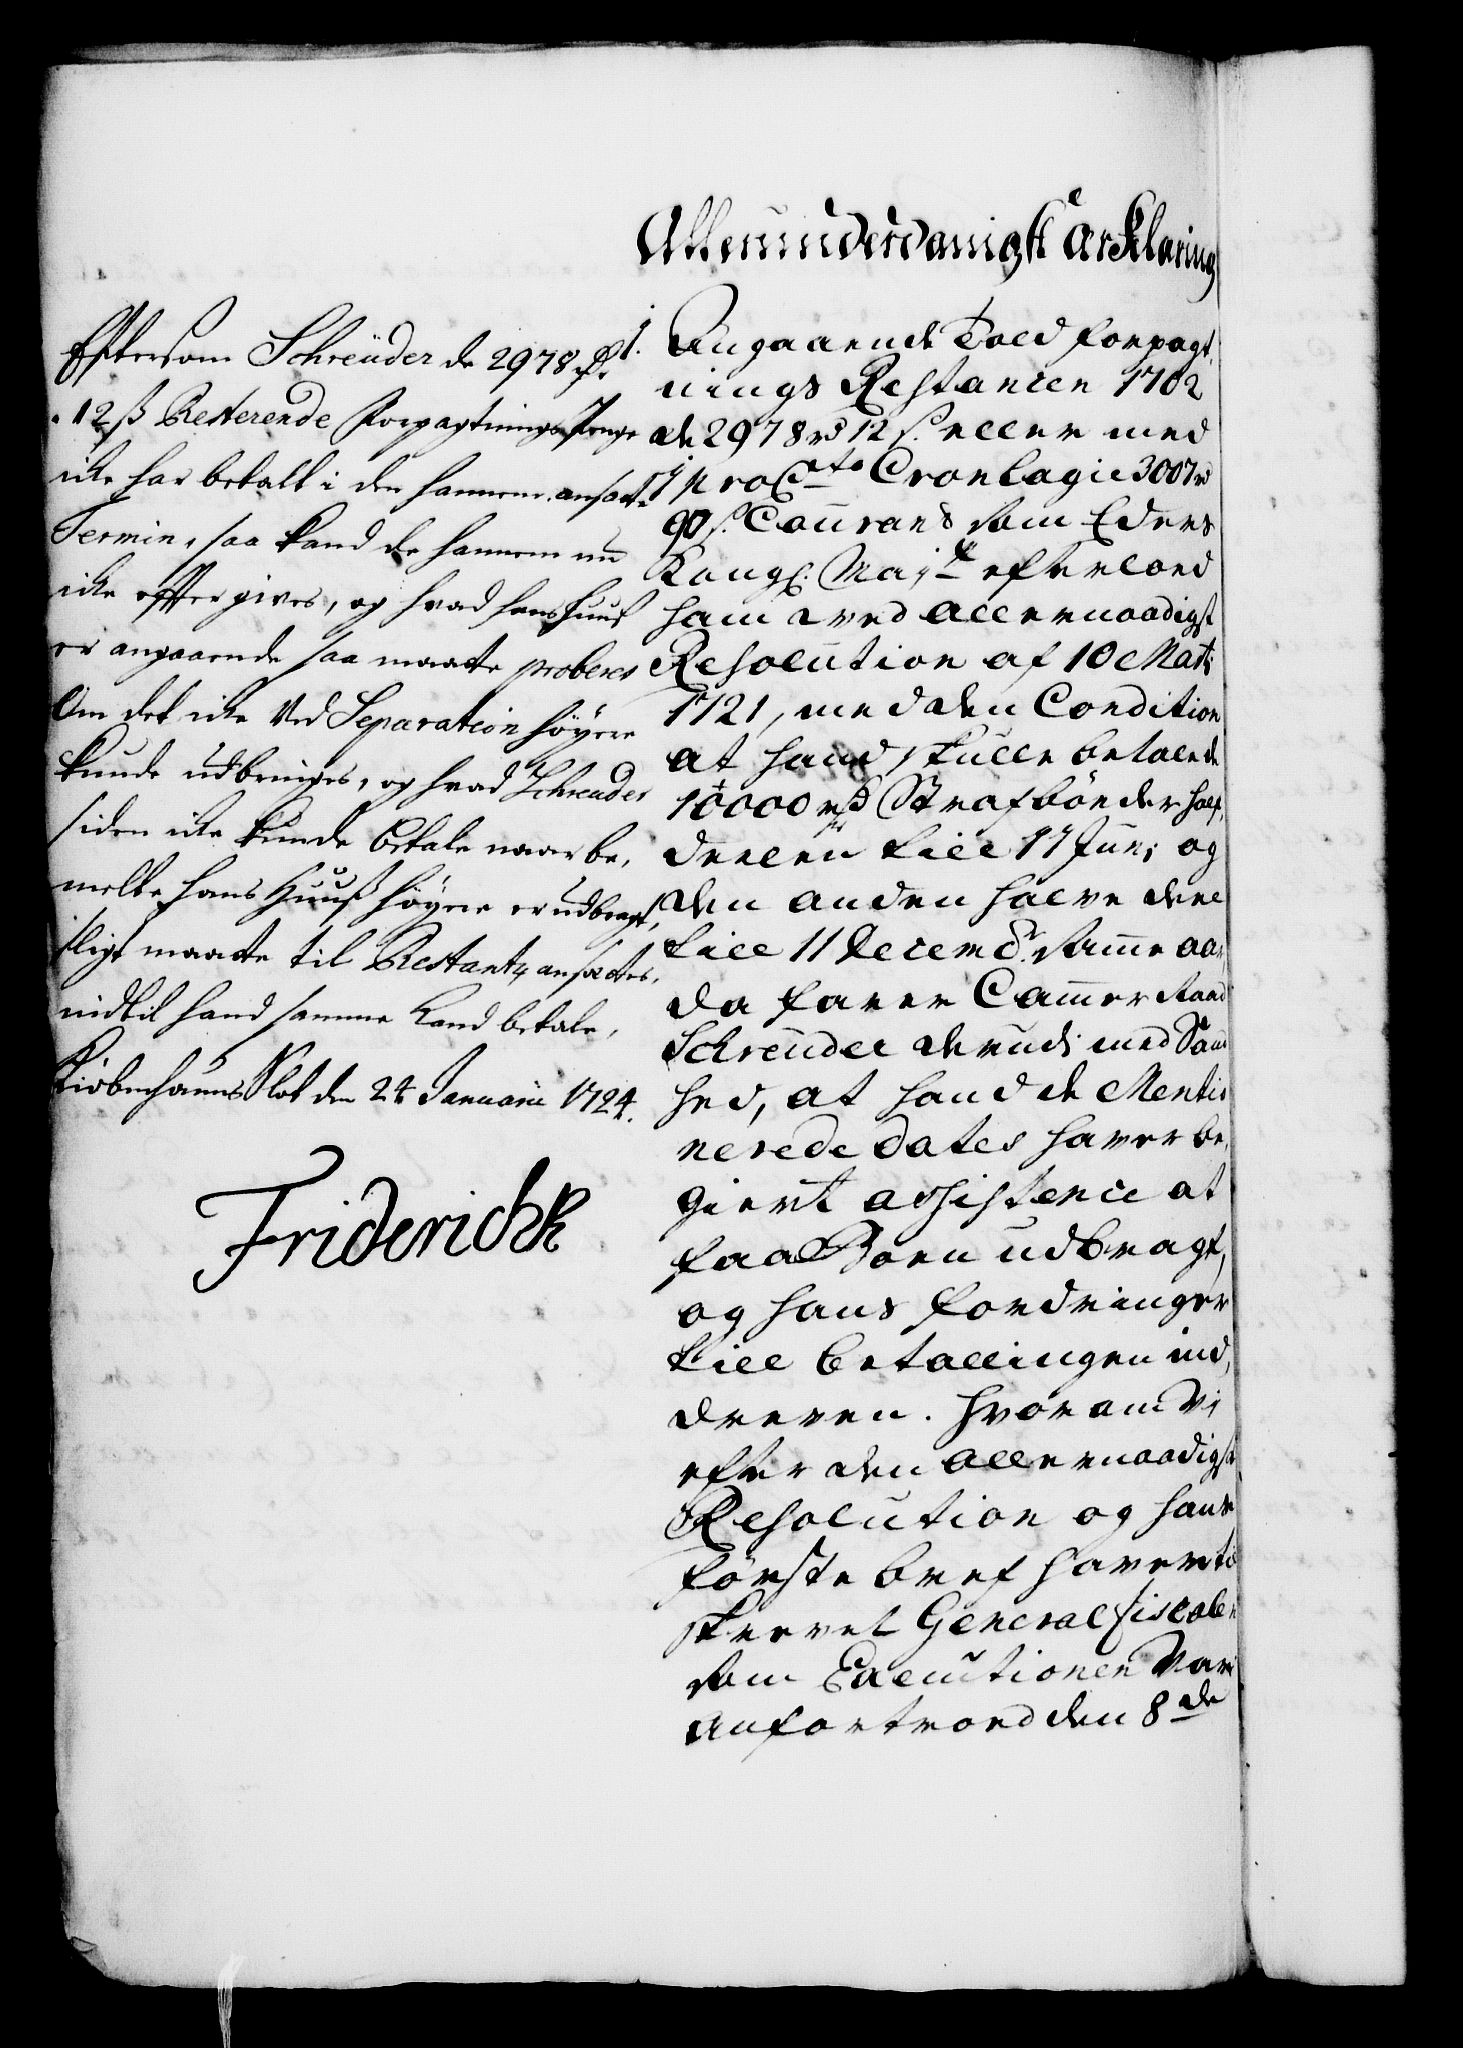 Allerunderdanigst Ærklæring
Eftersom Schreüder de 2978 rdr.
12 ß Resterende Forpagtnings Penge
icke har betalt i den hannem ansatte
Termin, saa kand de hannem nu
icke effter gives, og hvad hans Huus
er angaaende saa maatte proberes
Om det icke Ved Separation höyere
kunde udbringes, og hvad Schreuder
siden icke kunde betale naar be,
melte hans Huuß höyere er udbragt,
sligt maatte til Restantz ansættes,
indtil hand samme kand betale,
Kiøbenhaufns Slot den 24 Januarii 1724.
Friderich R
1. Angaaende Told forpagt,
nings Restancen 1702
de 2978 rd 12 s. eller med
1 pro Cto Cronlagie 3007 rd
90 s. Courant som Eders
Kongl. Maj.tt efterlod
ham ved allernaadigst
Resolution af 10 Marti
1721, med den Condition
at hand skulle betale de
10000 rd Strafbøder half,
delen till 11 Juni og
den anden halve deel
till 11 Decembr. samme aar,
da farer Cammer Raad
Schreuder derudi med Sand
hed, at hand de Mentio
nerede dates haver be,
giert assistence at
faa Boen udbragt,
og hans fordringer
till betallingen ind,
dreven. Hvorom Vi
efter den allernaadigste
Resolution og hans
første bref haver til
skrevet General fiscalen
som Executionen var
anfortroed den 8de